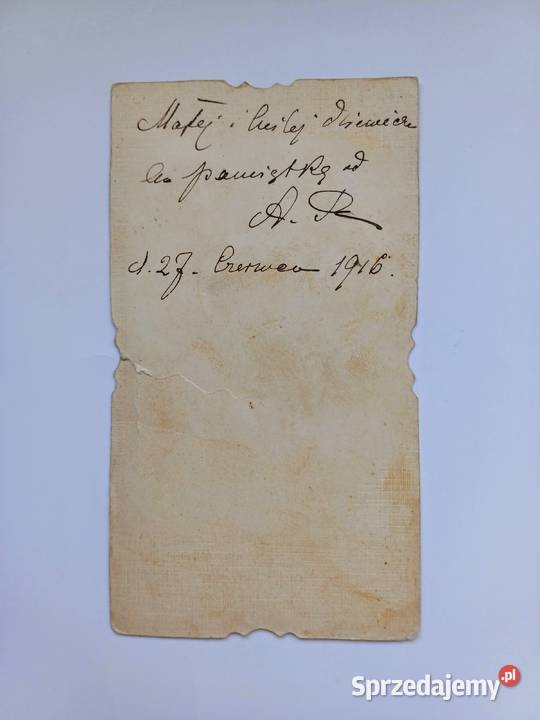 Małej i miłej dziewicze
na pamiątkę od
A. R
d. 27. Czerwca 1916.
Sprzedajemy.pl